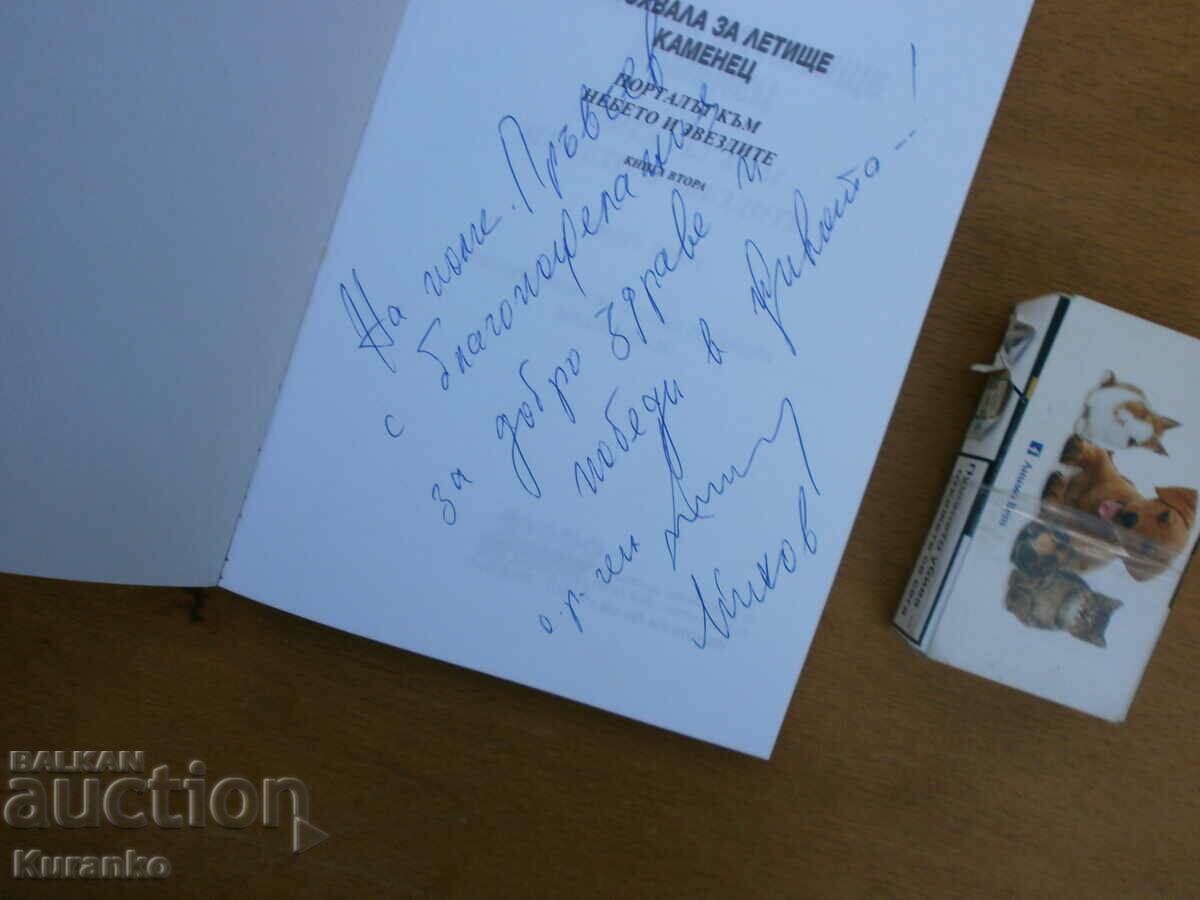 ХВАЛА ЗА ЛЕТИЩЕ
КАМЕНЕЦ
ПОРТАЛЪТ КЪМ
НЕБЕТО И ЗВЕЗДИТЕ
КНИГА ВТОРА
На полк. Първанов
с благопожелания
за добро здраве и
победи в
о.р. ген
Миков
BALKAN
auction
Kuranko